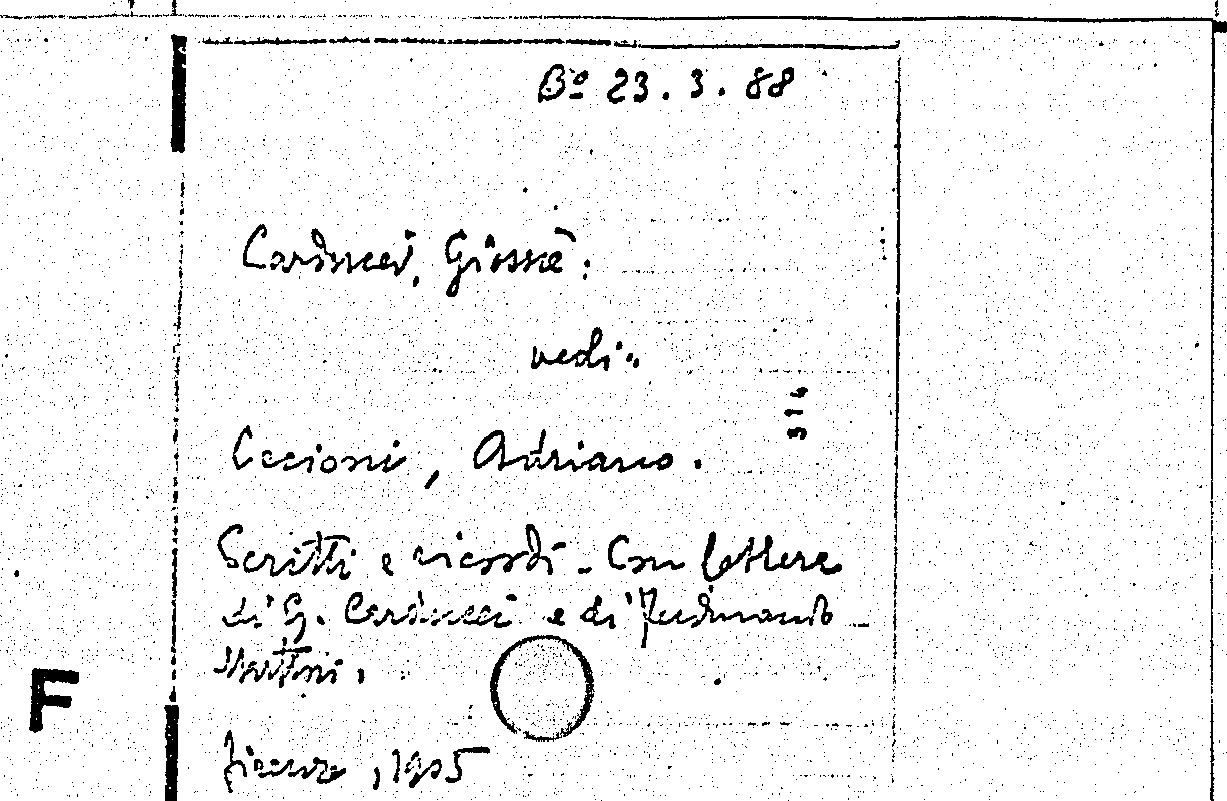 Bº 23.3.88
Carducci, Giosuè:
vedi:
314
Cecioni, Adriano.
Scritti e ricordi - Con lettere
di G. Carducci e di Ferdinando
Martini.
F
Firenze, 1905